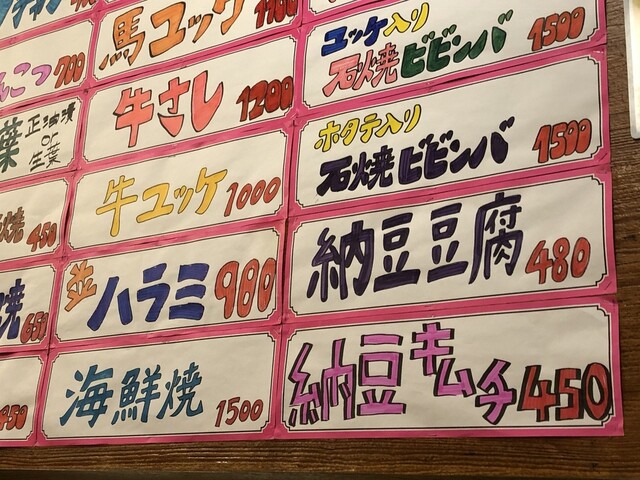 馬ユッケ 1100
牛さし 1200
牛ユッケ 1000
ハラミ 980
海鮮焼 1500
ユッケ入り
石焼ビビンバ 1500
ホタテ入り
石焼ビビンバ 1500
納豆豆腐 480
納豆キムチ 450
こつ 700
葉 正油漬
or
生葉
焼 450
焼 650
450